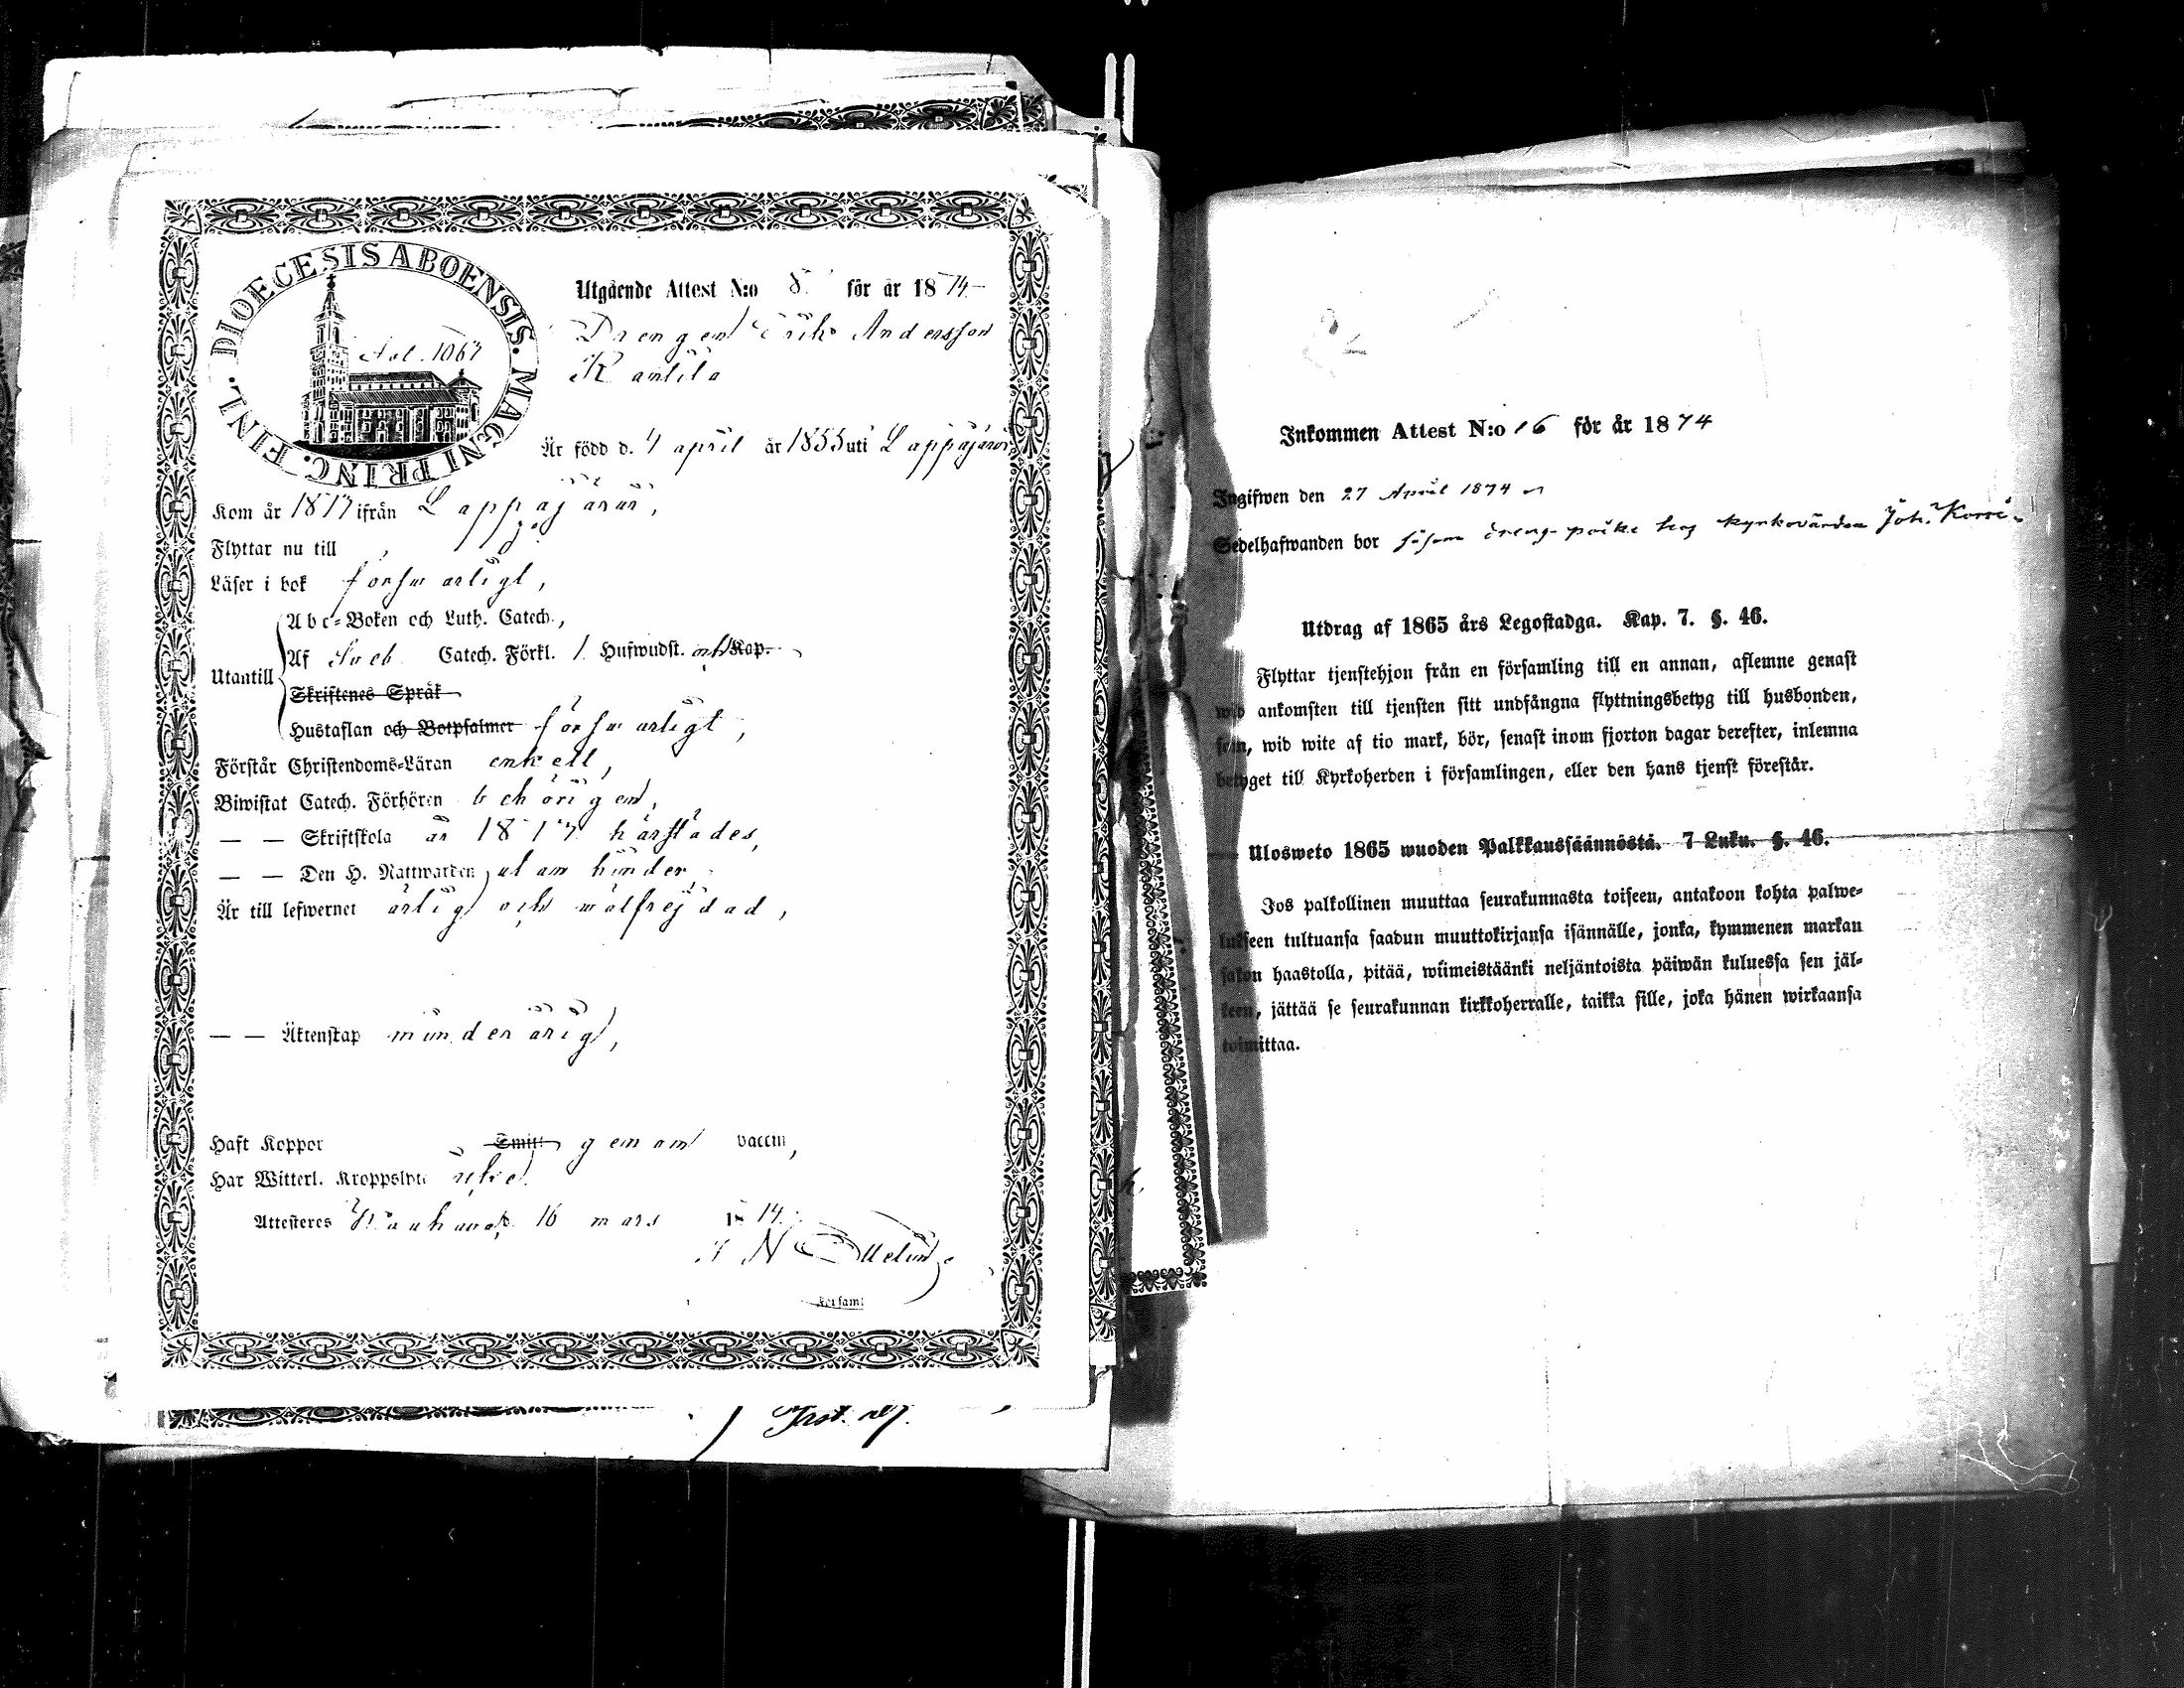 DIOECESIS ABOENSIS. MAGNI PRINC. FINL.
Fol. 1067
Utgående Attest N:o 8. för år 1874
Drengen Erik Andersson
Rantila
Är född d. 4 april år 1855 uti Lappajärvi
Kom år 1873 ifrån Lappajärvi,
Flyttar nu till
Läser i bok försvarligt,
Utantill
Abc-Boken och Luth. Catech.,
Af Sveb. Catech. Förkl. 1. Hufwudst. och Kap.
Skriftenes Språk
Hustaflan och Botpsalmer försvarligt,
Förstår Christendoms-Läran enkelt,
Biwistat Catech. Förhören behörigen,
— — Skriftskola år 1873 härstädes,
— — Den H. Nattwarden utan hinder
Är till lefwernet ärlig och välfrejdad,
— — Äktenskap minderårig,
Haft Koppor Smitt. genom vaccin,
Har Witterl. Kroppslyte icke.
Attesteres 16 mars 1874.
Församl
Inkommen Attest N:o 16 för år 1874
Ingifwen den 27 April 1874
Sedelhafwanden bor såsom dreng-poike hos kyrkovärden Joh. Korsi
Utdrag af 1865 års Legostadga. Kap. 7. §. 46.
Flyttar tjenstehjon från en församling till en annan, aflemne genast
wid ankomsten till tjensten sitt undfångna flyttningsbetyg till husbonden,
som, wid wite af tio mark, bör, senast inom fjorton dagar derefter, inlemna
betyget till Kyrkoherden i församlingen, eller den hans tjenst förestår.
Ulosweto 1865 wuoden Palkkaussäännöstä. 7 Luku. §. 46.
Jos palkollinen muuttaa seurakunnasta toiseen, antakoon kohta palwe-
lukseen tultuansa saadun muuttokirjansa isännälle, jonka, kymmenen markan
sakon haastolla, pitää, wiimeistäänki neljäntoista päiwän kuluessa sen jäl-
keen, jättää se seurakunnan kirkkoherralle, taikka sille, joka hänen wirkaansa
toimittaa.